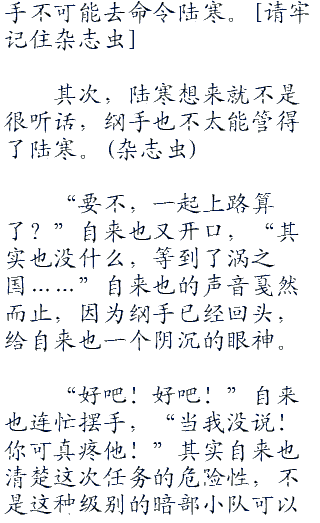 手不可能去命令陆寒。[请牢
记住杂志虫]
其次，陆寒想来就不是
很听话，纲手也不太能管得
了陆寒。(杂志虫)
“要不，一起上路算
了？”自来也又开口，“其
实也没什么，等到了涡之
国……”自来也的声音戛然
而止，因为纲手已经回头，
给自来也一个阴沉的眼神。
“好吧！好吧！”自来
也连忙摆手，“当我没说！
你可真疼他！”其实自来也
清楚这次任务的危险性，不
是这种级别的暗部小队可以